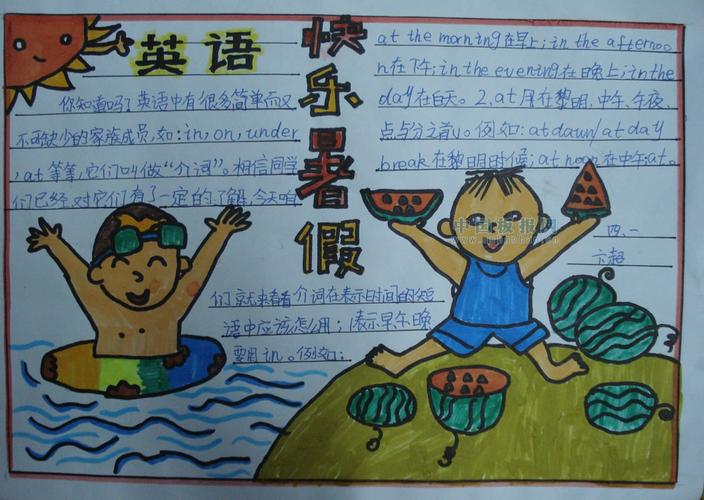 英语
快乐暑假
你知道吗？英语中有很多简单而又
不可缺少的家族成员,如:in,on,under
,at等等,它们叫做“介词”。相信同学
们已经对它们有了一定的了解,今天咱
们就来看看介词在表示时间的短
语中应该怎么用；1表示早午晚
要用in。例如：
at the morning在早上;in the afternoo
n在下午;in the evening在晚上;in the
day在白天。2,at用在黎明,中午、午夜、
点与分之前。例如:at dawn/at day
break在黎明时候;at noon在中午;at。
四、一
中国板报网